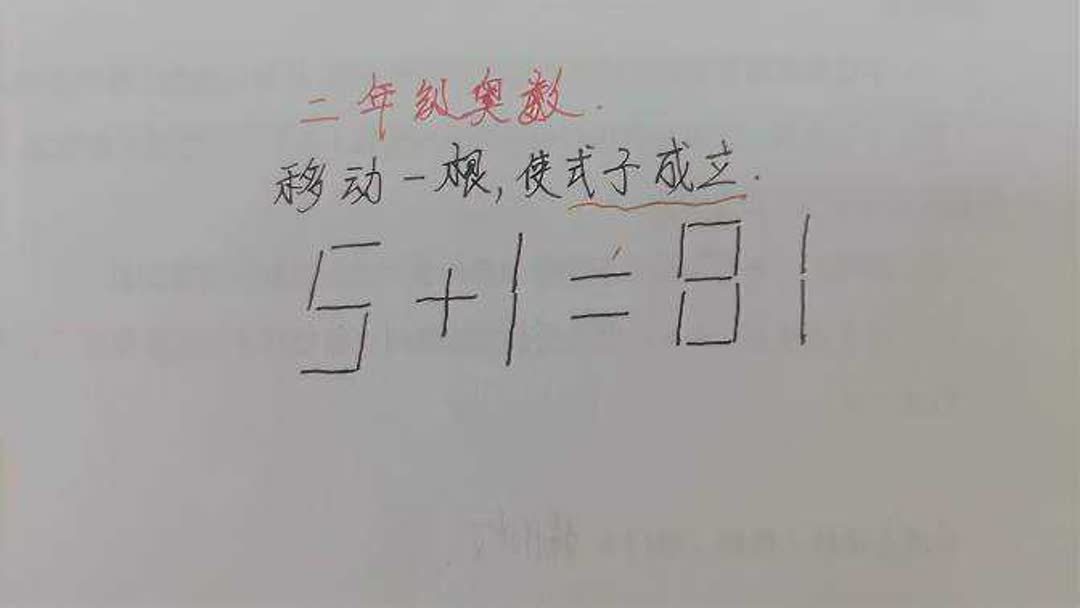 二年级奥数.
移动一根,使式子成立.
5+1=81